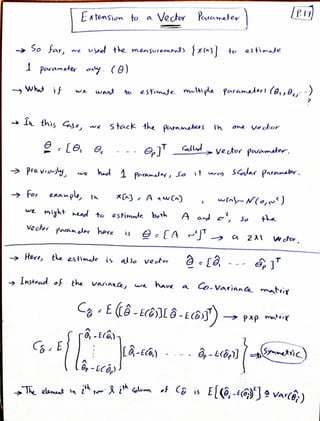 Extension to a Vector Parameter
P.17
→ So far, we used the measurements {x[n]} to estimate
1 parameter only. (θ)
→ What if we want to estimate multiple parameters (θ₁, θ₂, ...)
?
→ In this case, we stack the parameters in one vector
θ = [θ₁ θ₂ --- θp]ᵀ Called → Vector parameter.
→ previously, we had 1 parameter, so it was scalar parameter.
→ For example, in x[n] = A + w[n] , w[n] ~ N(0, σ²)
we might need to estimate both A and σ², so the
vector parameter here is θ = [A σ²]ᵀ → a 2x1 vector.
→ Here, the estimate is also vector θ̂ = [θ̂₁ --- θ̂p]ᵀ
→ Instead of the variance, we have a Co-variance matrix
C_θ̂ = E([θ̂ - E(θ̂)][θ̂ - E(θ̂)]ᵀ) → pxp matrix
C_θ̂ = E{ [θ̂₁ - E(θ̂₁) ⋮ θ̂p - E(θ̂p)] [θ̂₁ - E(θ̂₁) ---- θ̂p - E(θ̂p)] } → (Symmetric)
→ The element in iᵗʰ row & iᵗʰ column of C_θ̂ is E[(θ̂ᵢ - E(θ̂ᵢ))²] ≜ var(θ̂ᵢ)